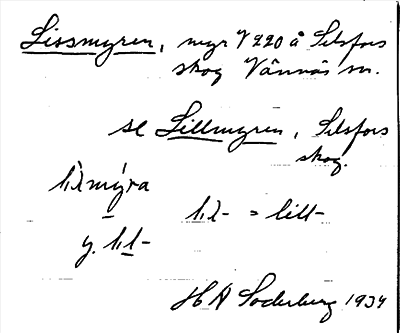 Lissmyren, myr V 220 å Selsfors
skog Vännäs sn.
se Lillmyren, Selsfors
skog.
lìlmýra
lìl- = lill-
y. lil-
H A Söderberg 1934